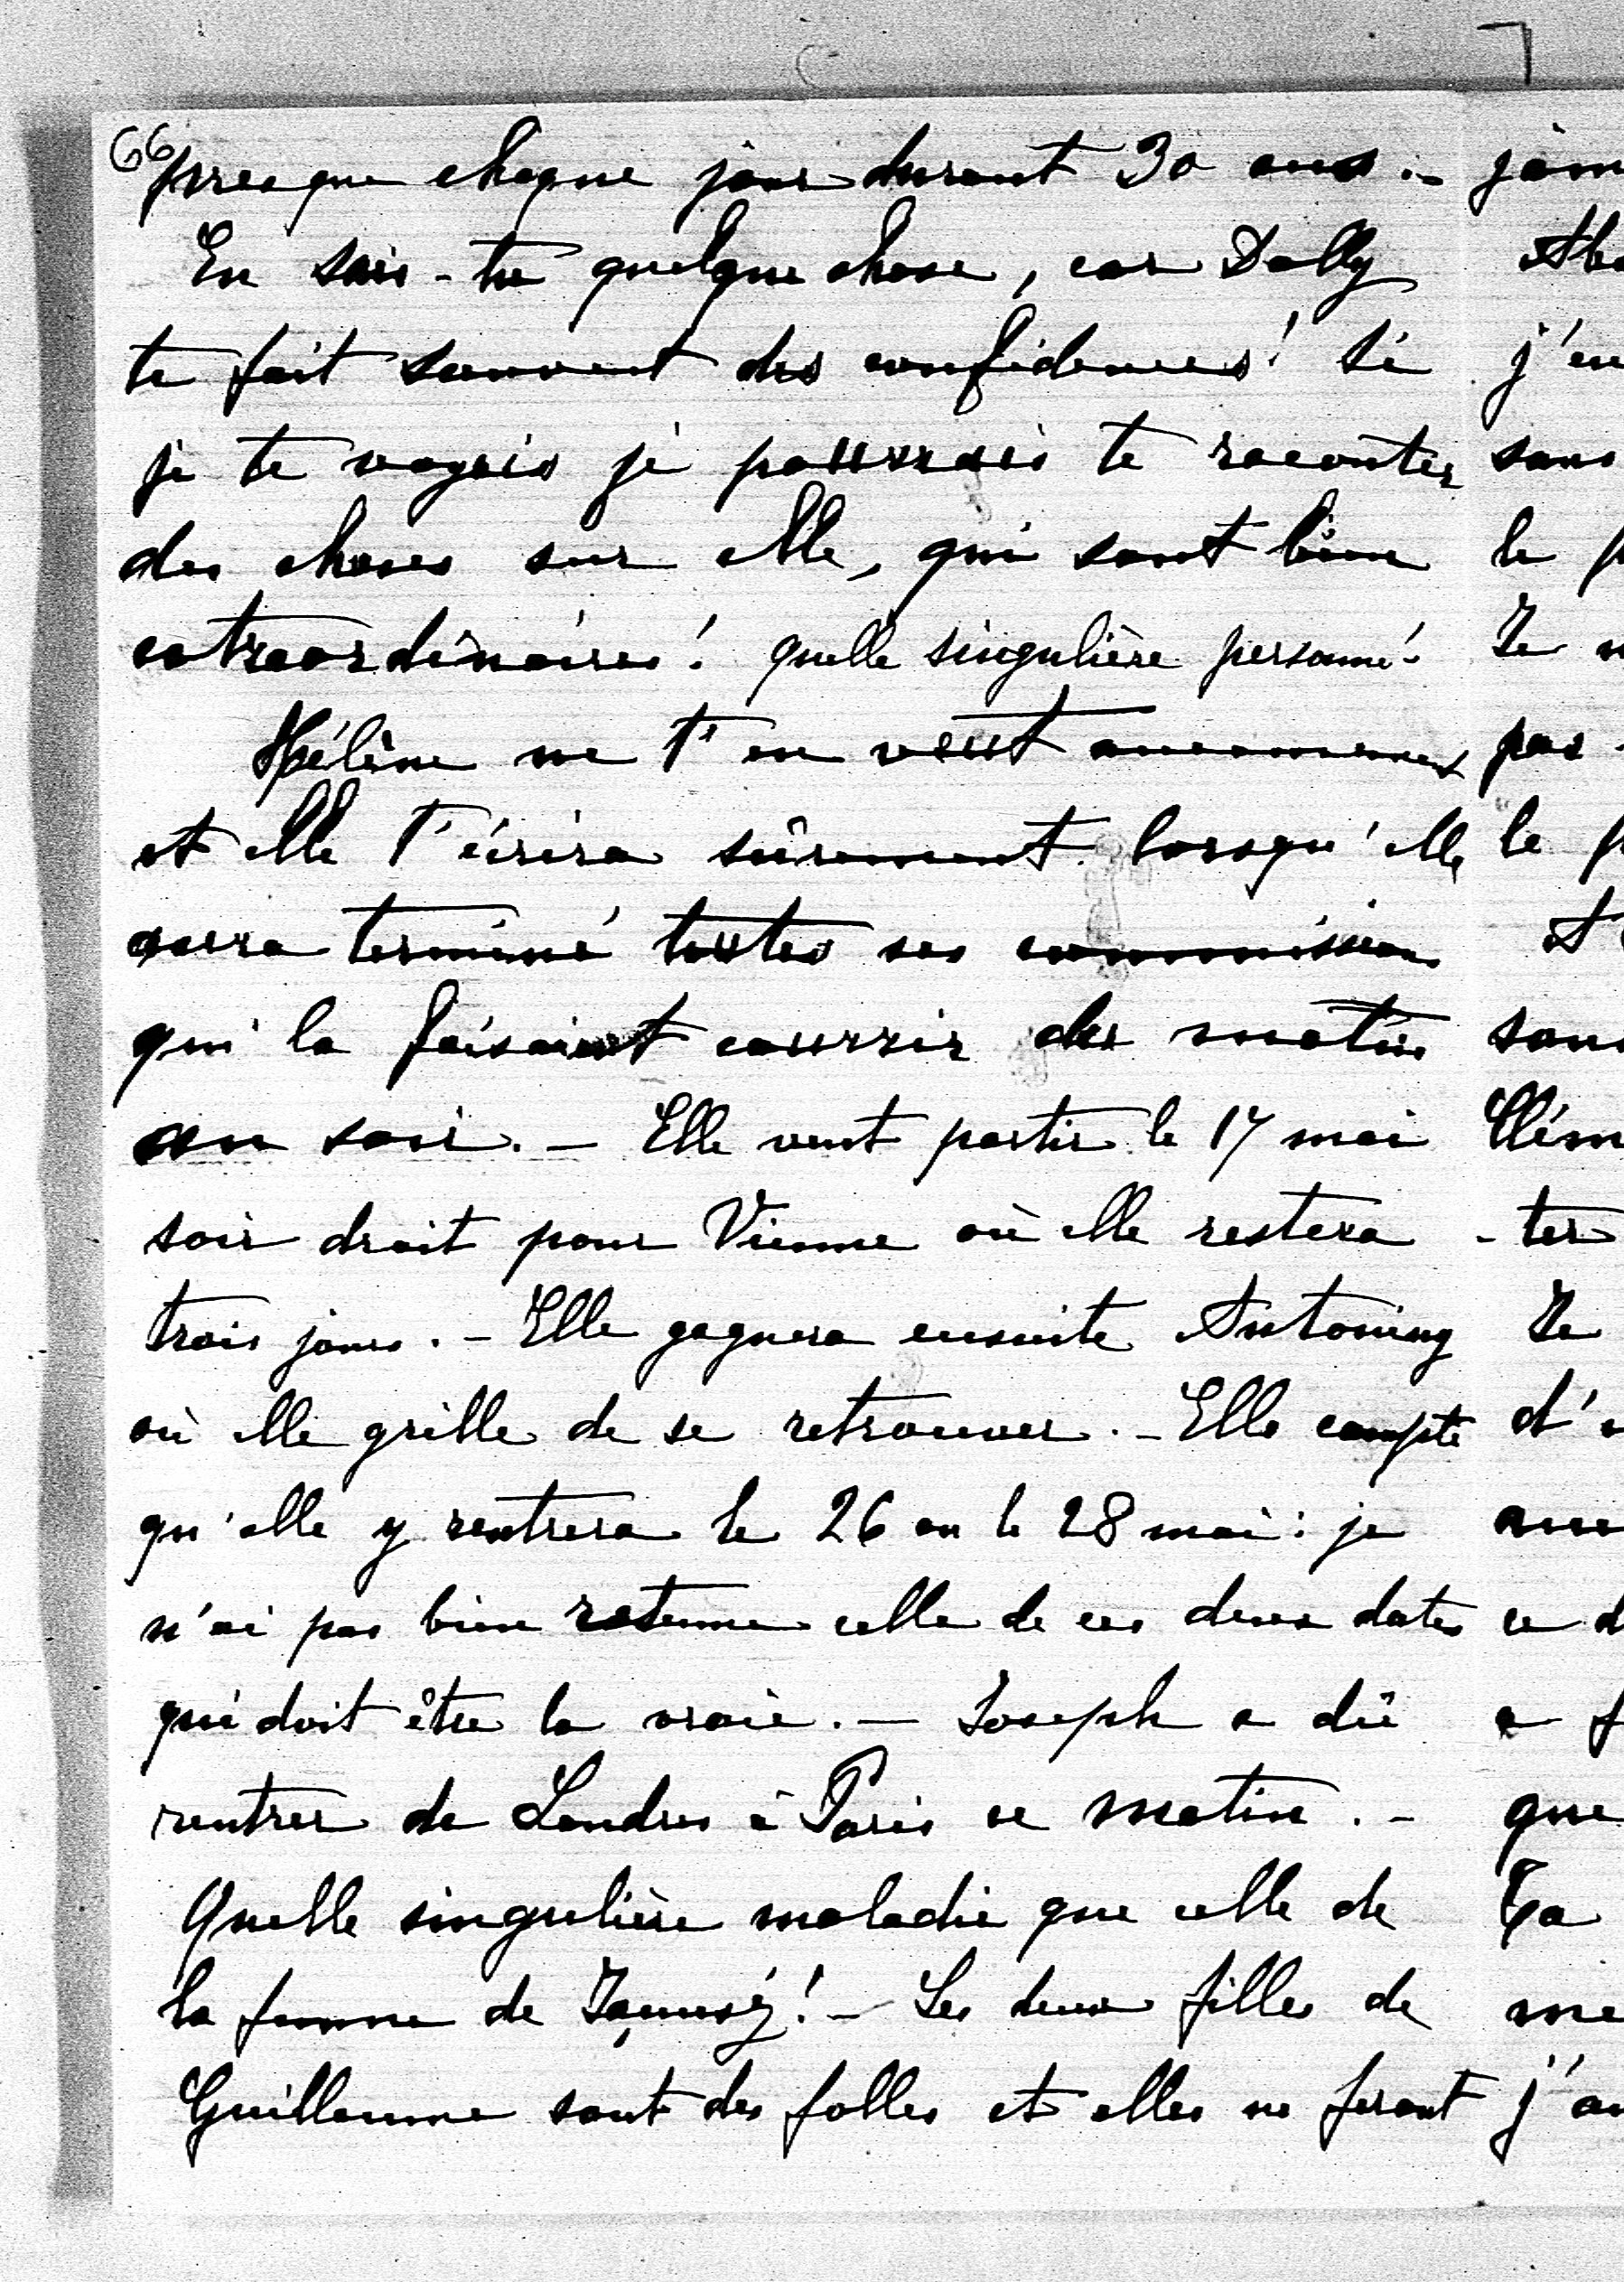 66
presque chaque jour durant 30 ans. –
En sais-tu quelque chose, car Dolly
te fait souvent des confidences! Si
je te voyais je pourrais te raconter
des choses sur elle, qui sont bien
extraordinaires! quelle singulière personne!
Hélène ne t'en veut aucunement
et elle t'écrira sûrement lorsqu'elle
aura terminé toutes ses commissions
qui la faisaient courrir des matin
au soir. – Elle veut partir le 17 mai
soir droit pour Vienne où elle restera
trois jours. – Elle gagnera ensuite Antoniny
où elle grille de se retrouver. – Elle compte
qu'elle y rentrera le 26 ou le 28 mai: je
n'ai pas bien retenue celle de ces deux dates
qui doit être la vraie. – Joseph a dû
rentrer de Londres à Paris ce matin. –
Quelle singulière maladie que celle de
la femme de! – Les deux filles de
Guillaume sont des folles et elles ne feront
jam
j'en
sans
le p
Je
pas
le
sans
Clém
-ter
Je
d'
ce d
a f
que
Ta
me